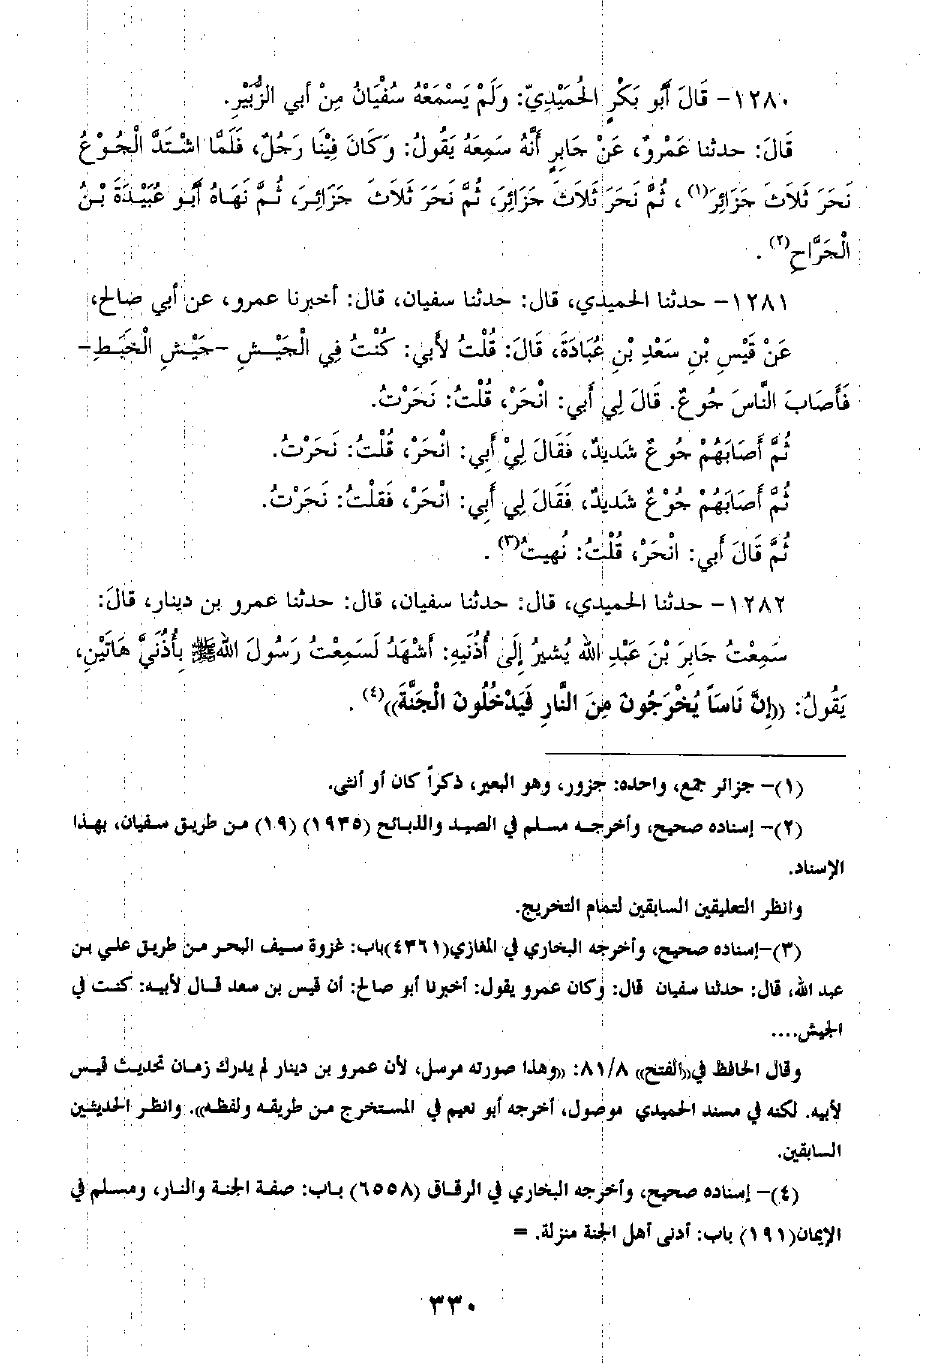 ١٢٨٠- قَالَ أَبُو بَكْرٍ الْحُمَيْدِيّ: وَلَمْ يَسْمَعْهُ سُفْيَانُ مِنْ أبي الزُّبَيْرِ.
قَالَ: حدثنا عَمْرو، عَنْ جَابِرٍ أَنَّهُ سَمِعَهُ يَقُولُ: وَكَانَ فِيْنَا رَجُلٌ، فَلَمَّا اشْتَدَّ الْجُوْعُ
نَحَرَ ثَلاَثَ جَزَائِرَ(١)، ثُمَّ نَحَرَ ثَلاَثَ جَزَائِرَ، ثُمَّ نَحَرَ ثَلاَثَ جَزَائِرَ، ثُمَّ نَهَاهُ أَبُو عُبَيْدَةَ بْنُ
الْجَرَّاحِ(٢).
١٢٨١- حدثنا الحميدي، قال: حدثنا سفيان، قال: أخبرنا عمرو، عن أبي صالح،
عَنْ قَيْسِ بْنِ سَعْدِ بْنِ عُبَادَةَ، قَالَ: قُلْتُ لأَبي: كُنْتُ فِي الْجَيْشِ -جَيْشِ الْخَبَطِ-
فَأَصَابَ النَّاسَ جُوعٌ. قَالَ لِي أَبي: انْحَرْ، قُلْتُ: نَحَرْتُ.
ثُمَّ أَصَابَهُمْ جُوعٌ شَدِيدٌ، فَقَالَ لِيْ أَبِي: انْحَرْ، قُلْتُ: نَحَرْتُ.
ثُمَّ أَصَابَهُمْ جُوْعٌ شَدِيدٌ، فَقَالَ لِي أَبِي: انْحَرْ، فَقلْتُ: نَحَرْتُ.
ثُمَّ قَالَ أَبي: انْحَرْ، قُلْتُ: نُهيتُ(٣).
١٢٨٢- حدثنا الحميدي، قال: حدثنا سفيان، قال: حدثنا عمرو بن دينار، قالَ:
سَمِعْتُ جَابِرَ بْنَ عَبْدِ الله يُشيرُ إِلَى أُذُنَيهِ: أَشْهَدُ لَسَمِعْتُ رَسُولَ اللهﷺ بِأُذُنَيَّ هَاتَيْنِ،
يَقُولُ: ((إِنَّ نَاسَاً يُخْرَجُونَ مِنَ النَّارِ فَيَدْخُلُونَ الْجَنَّةَ))(٤).
(١)- جزائر جمع، واحده: جزور، وهو البعير، ذكراً كان أو أنثى.
(٢)- إسناده صحيح، وأخرجه مسلم في الصيد والذبائح (١٩٣٥) (١٩) من طريق سفيان، بهذا
الإسناد.
وانظر التعليقين السابقين لتمام التخريج.
(٣)-إسناده صحيح، وأخرجه البخاري في المغازي(٤٣٦١)باب: غزوة سيف البحر من طريق علي بن
عبد الله، قال: حدثنا سفيان قال: وكان عمرو يقول: أخبرنا أبو صالح: أن قيس بن سعد قال لأبيه: كنت في
الجيش....
وقال الحافظ في((الفتح)) ٨١/٨: ((وهذا صورته مرسل، لأن عمرو بن دينار لم يدرك زمان تحديث قيس
لأبيه. لكنه في مسند الحميدي موصول، أخرجه أبو نعيم في المستخرج من طريقه ولفظه)). وانظر الحديثين
السابقين.
(٤)- إسناده صحيح، وأخرجه البخاري في الرقاق (٦٥٥٨) باب: صفة الجنة والنار، ومسلم في
الإيمان(١٩١) باب: أدنى أهل الجنة منزلة. =
٣٣٠